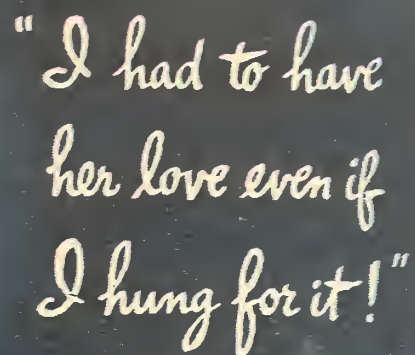 "I had to have
her love even if
I hung for it!"